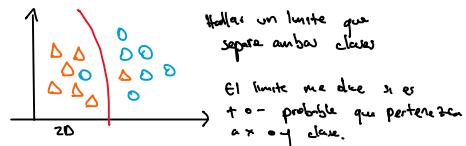 Hallar un limite que
separe ambas clases
El limite me dice si es
+ o - probable que pertenezca
a x o y clase.
2D